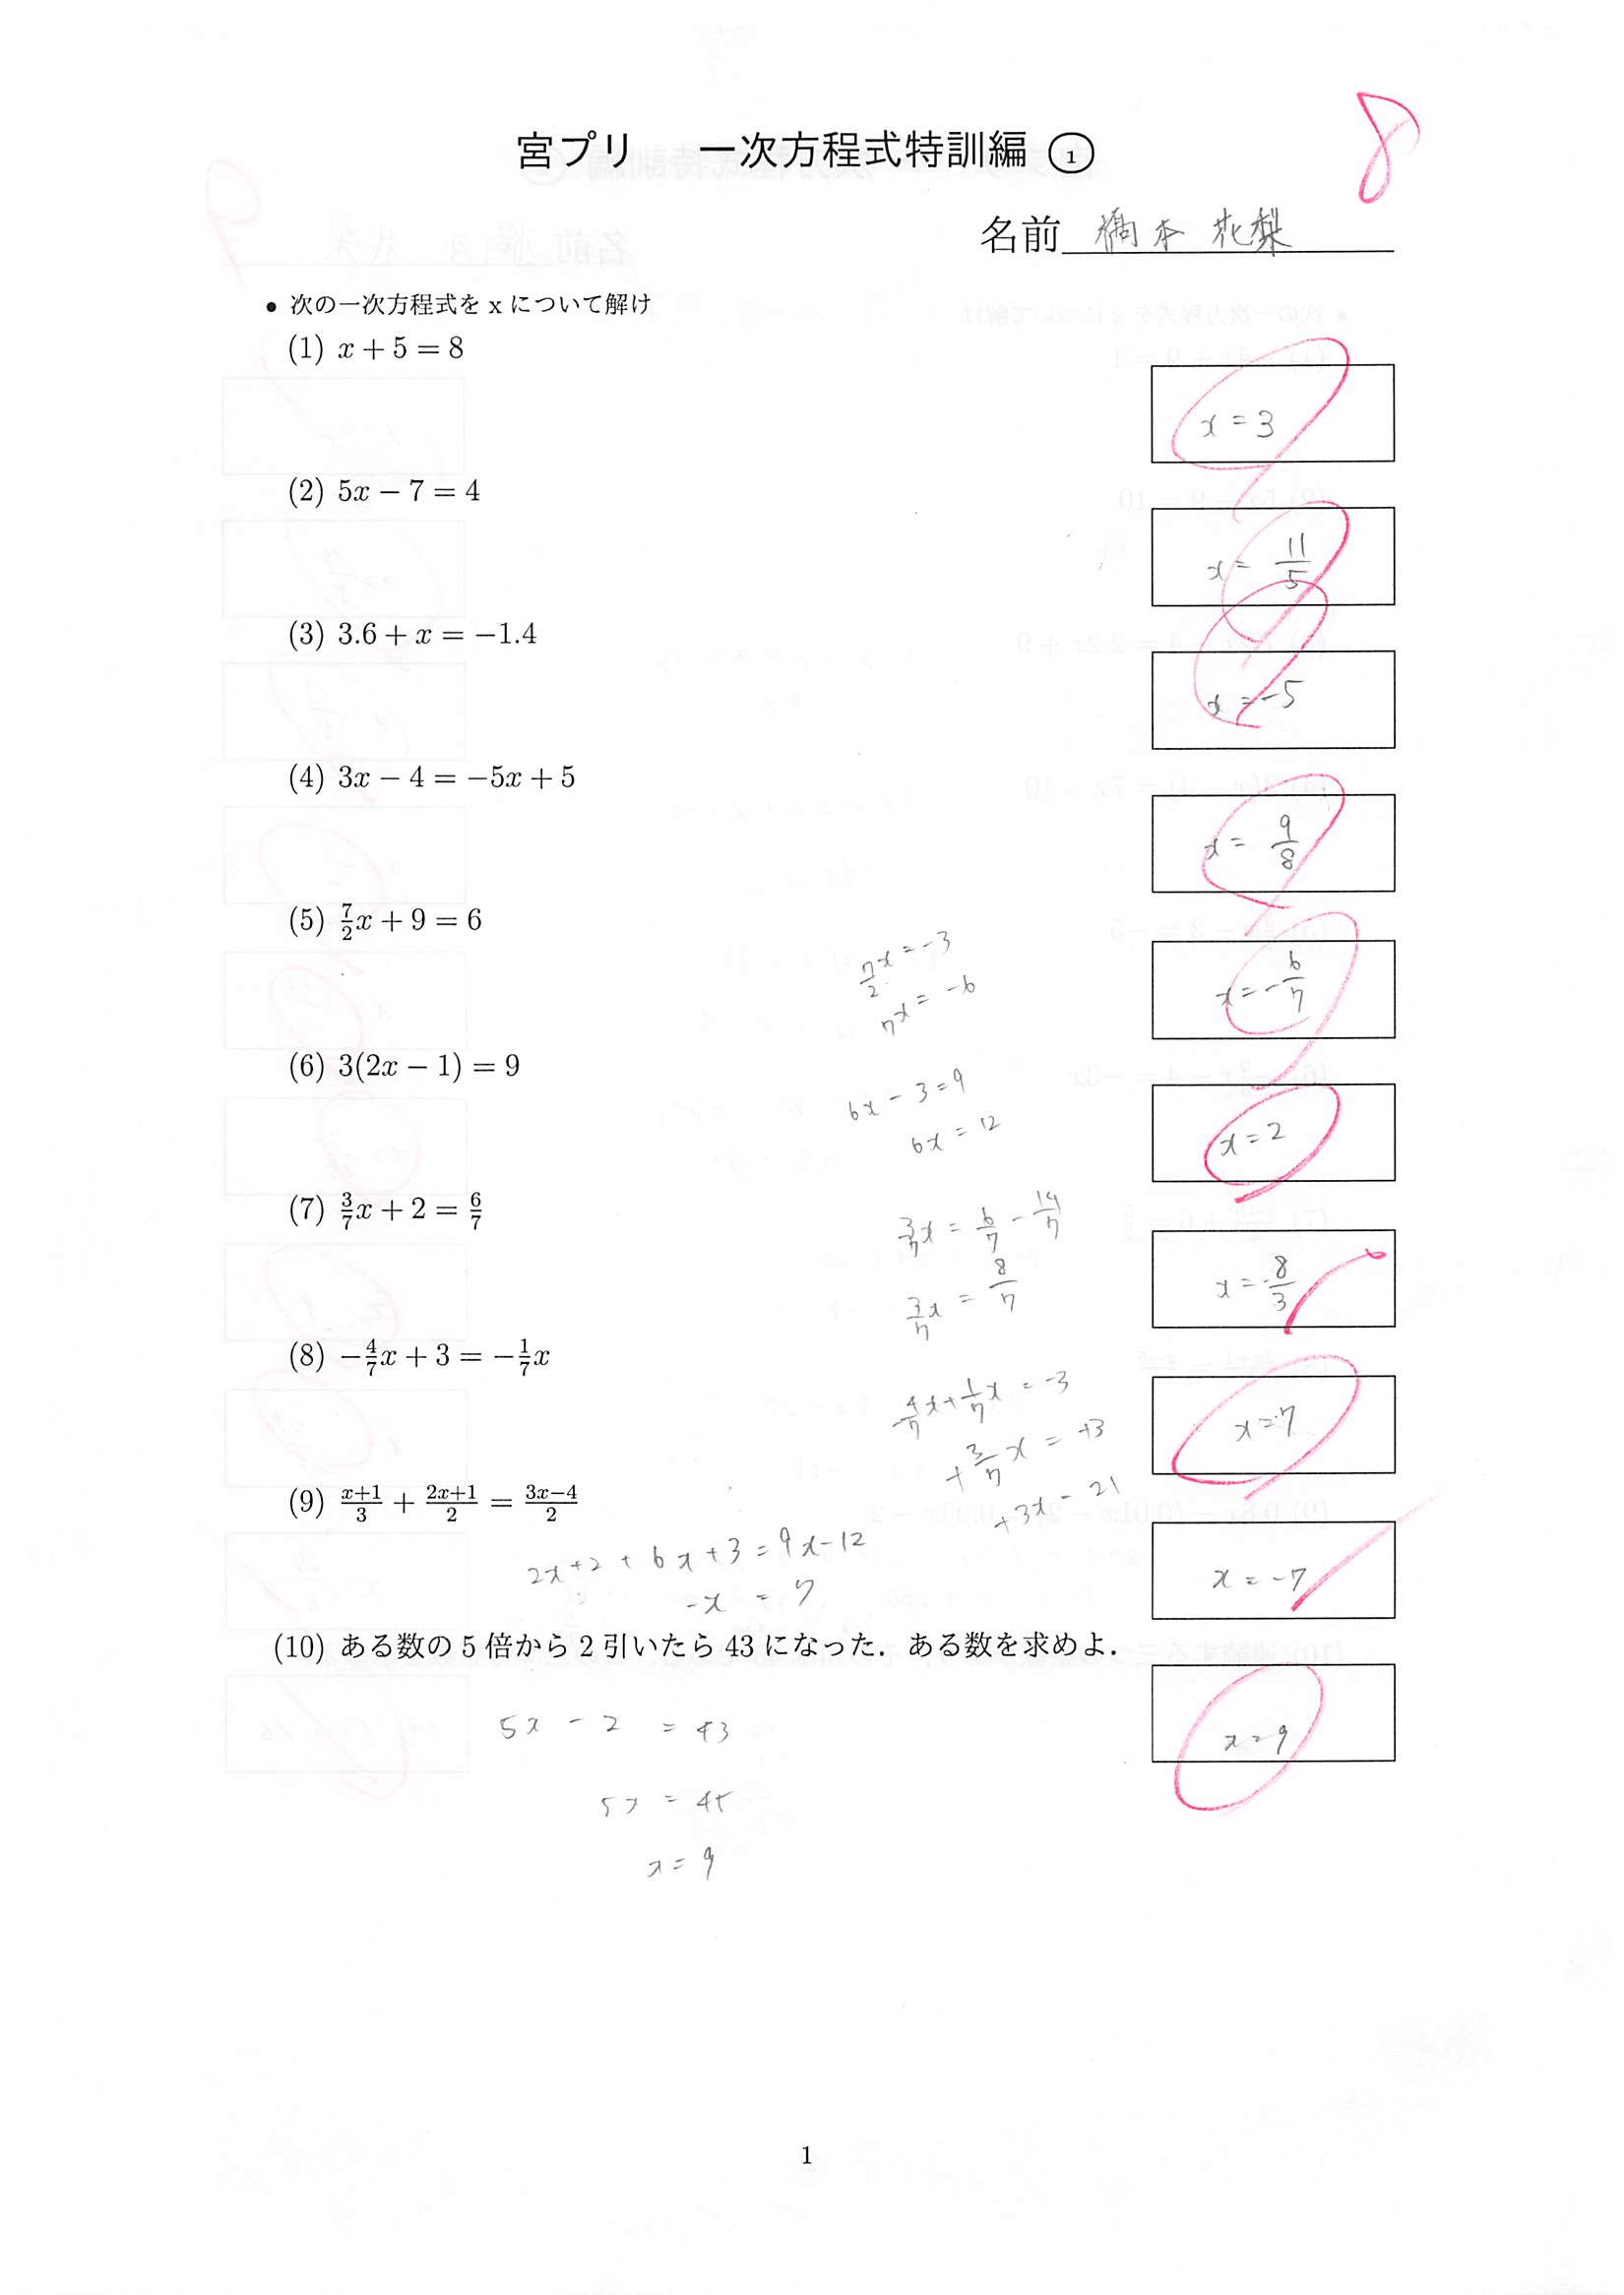 8
宮プリ 一次方程式特訓編 ①
名前 橋本 花梨
• 次の一次方程式を x について解け
(1) x + 5 = 8
x = 3
(2) 5x − 7 = 4
x = 11/5
(3) 3.6 + x = −1.4
x = -5
(4) 3x − 4 = −5x + 5
x = 9/8
(5) 7/2 x + 9 = 6
7/2 x = -3
7x = -6
x = -6/7
(6) 3(2x − 1) = 9
6x - 3 = 9
6x = 12
x = 2
(7) 3/7 x + 2 = 6/7
3/7 x = 6/7 - 14/7
3/7 x = 8/7
x = -8/3
(8) −4/7 x + 3 = −1/7 x
-4/7 x + 1/7 x = -3
+3/7 x = +3
+3x = 21
x = 7
(9) (x+1)/3 + (2x+1)/2 = (3x−4)/2
2x+2 + 6x+3 = 9x-12
-x = 7
x = -7
(10) ある数の 5 倍から 2 引いたら 43 になった．ある数を求めよ．
5x - 2 = 43
5x = 45
x = 9
x = 9
1